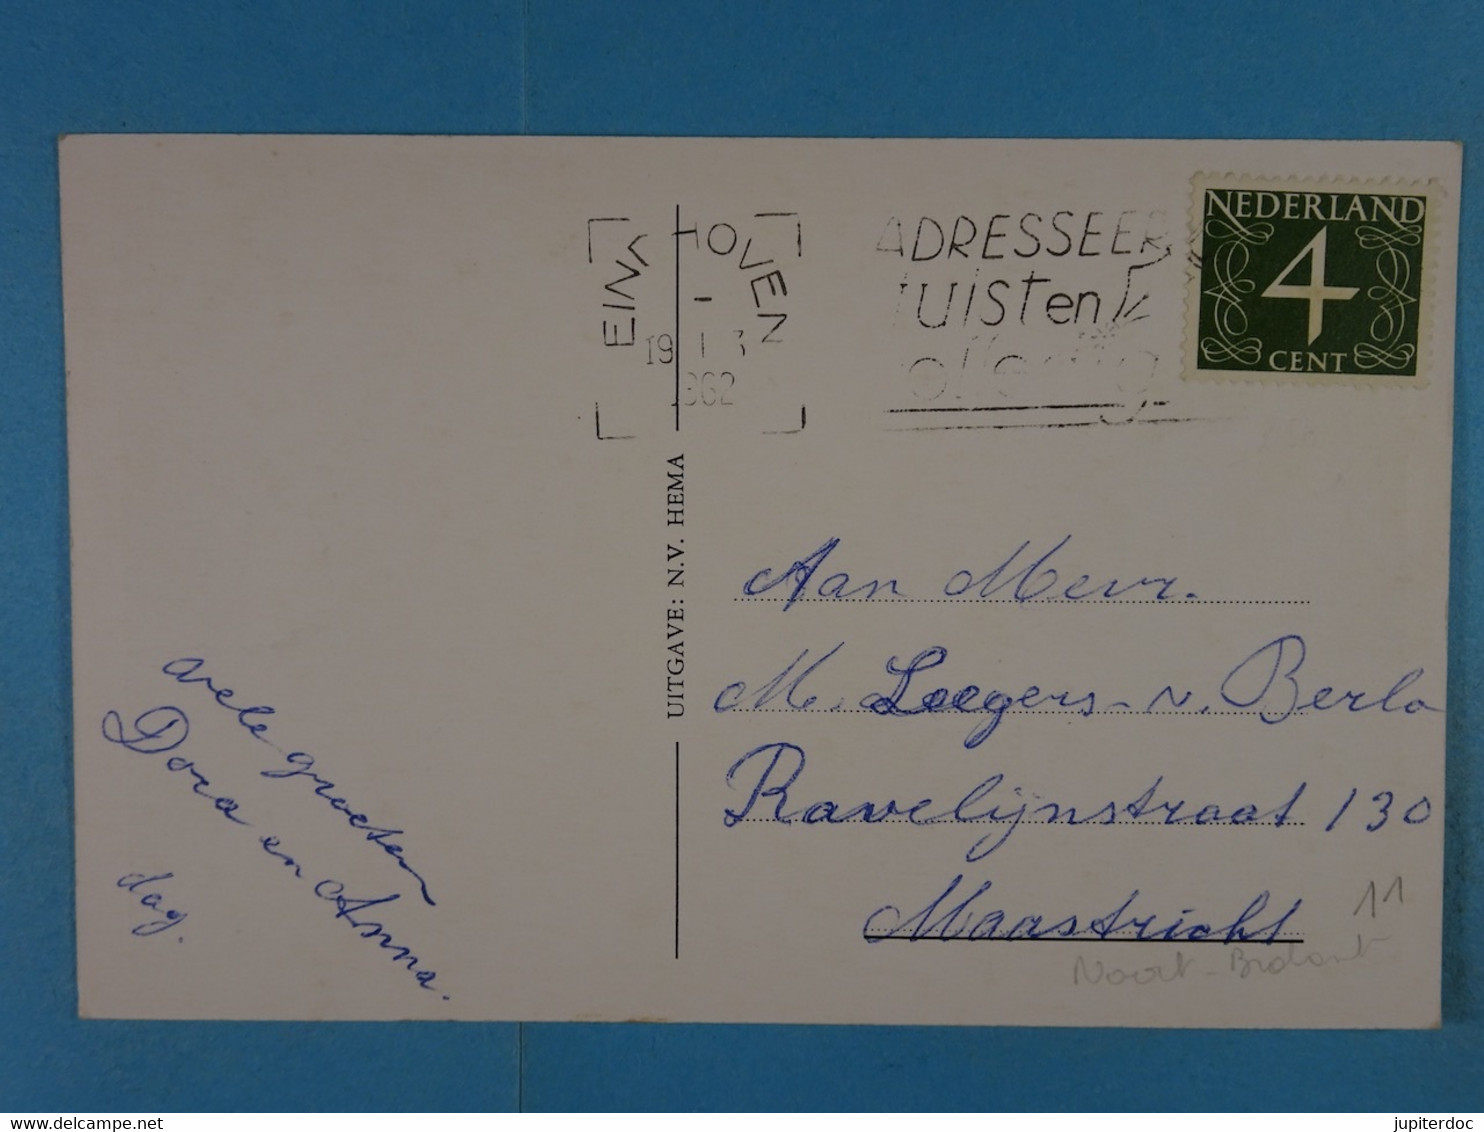 EINDHOVEN
19
1962
ADRESSEER
juist en
volledig
NEDERLAND
4
CENT
UITGAVE: N.V. HEMA
vele groeten
Dora en Anna.
dag.
Aan Mevr.
M. Loegers-v. Berlo
Ravelijnstraat 130
Maastricht
11
Noort-Brabant
www.delcampe.net
jupiterdoc